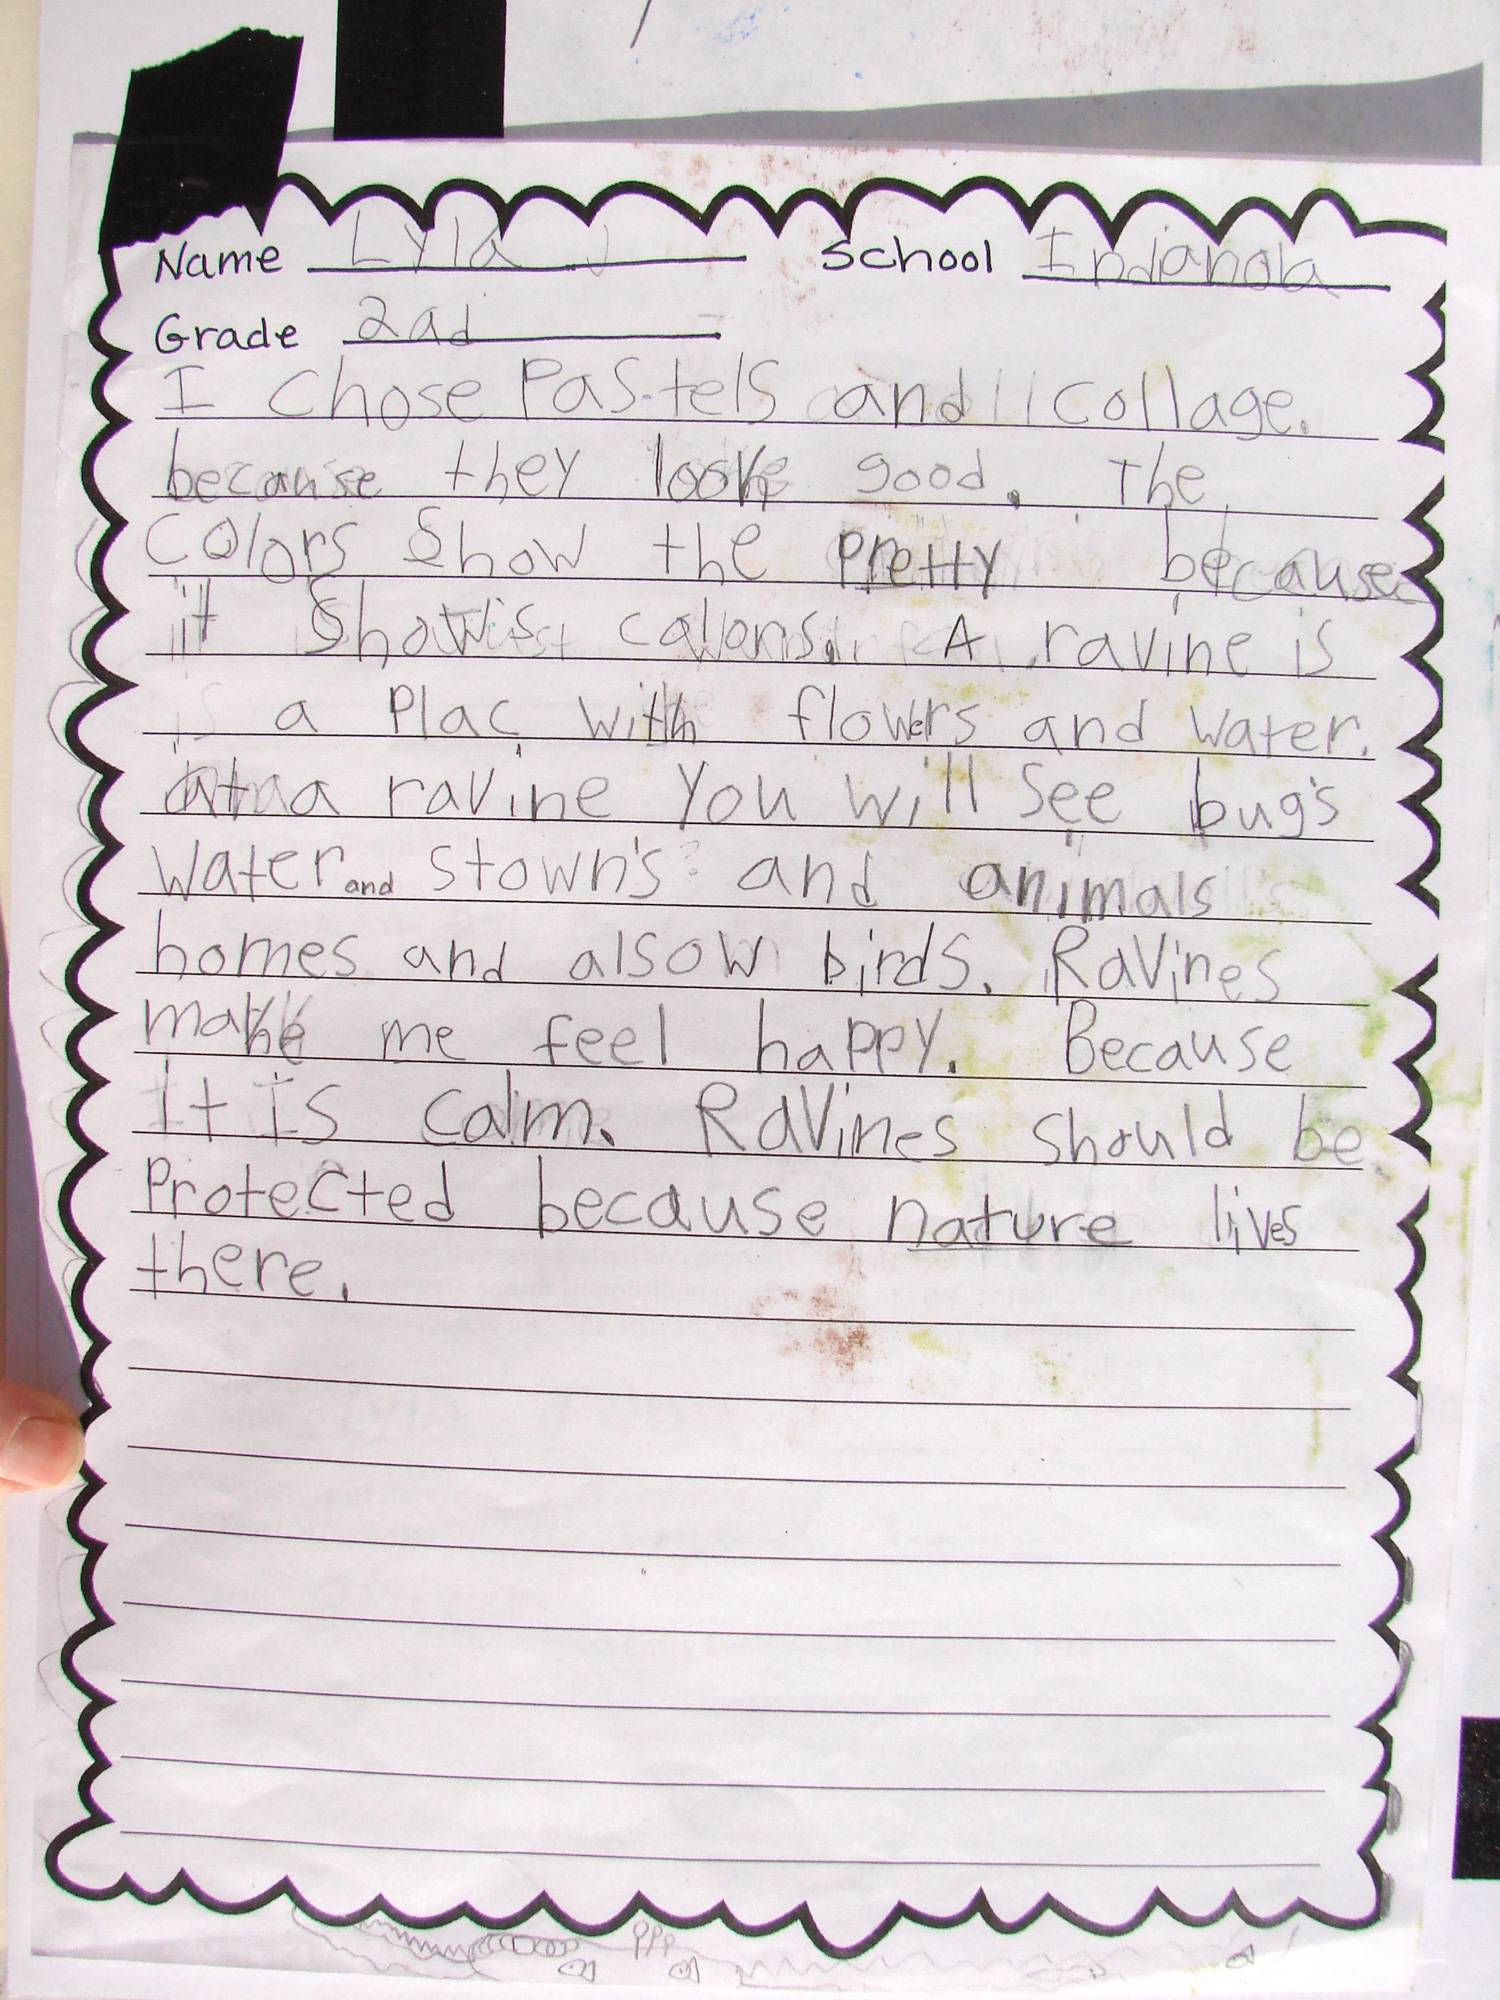 Name Lyla J School Indianola
Grade 2nd
I chose Pastels and collage.
because they look good. The
Colors Show the Pretty because
it Shows calors. A ravine is
a Plac with flowers and water.
at a ravine You will See bug's
Water and stown's and animals
homes and alsow birds. Ravines
make me feel happy. Because
it is calm. Ravines should be
Protected because nature lives
there.